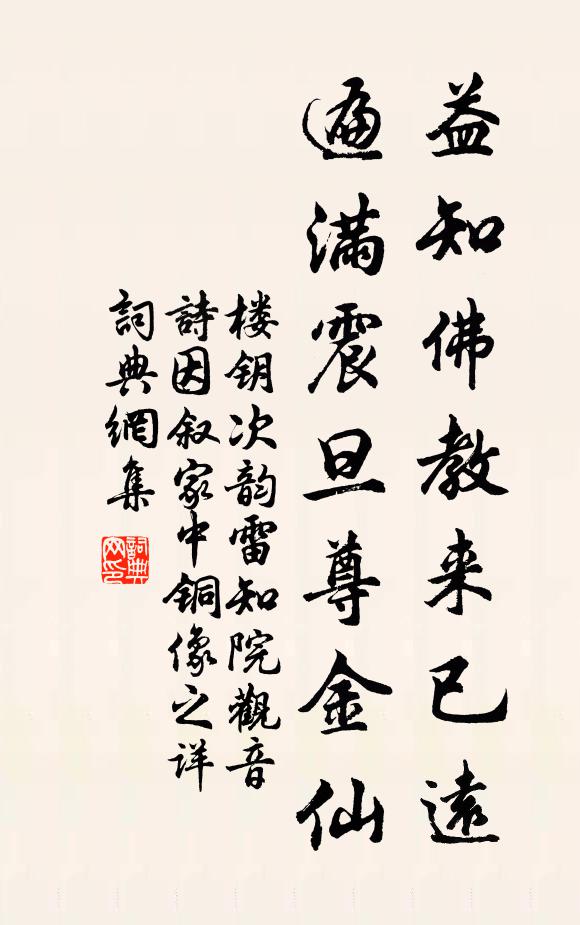 益知佛教来已遠
遍满震旦尊金仙
楼钥次韵雷知院觀音
詩因叙家中銅像之详
詞典網集
詞典网印